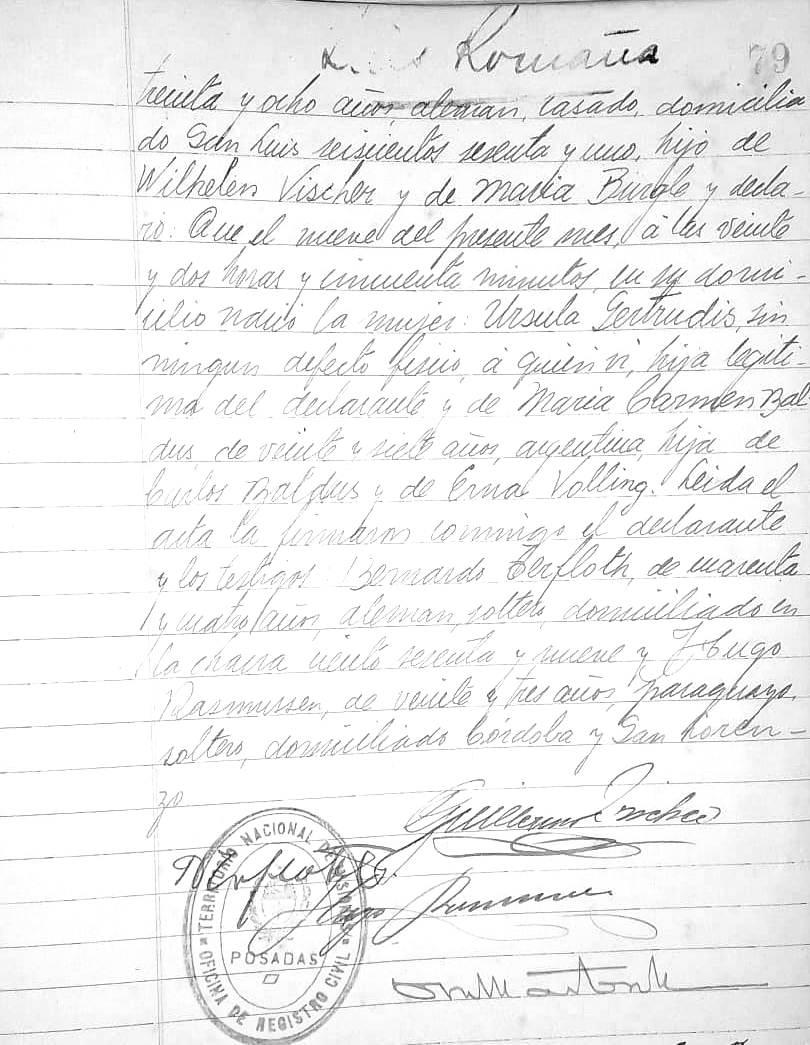 Luis Romaña
79
treinta y ocho años, aleman, casado, domicilia
do San Luis seiscientos sesenta y uno, hijo de
Wilhelen Vischer y de Maria Burgle y decla-
ró: Que el nueve del presente mes, á las veinte
y dos horas y cincuenta minutos, en su domi-
cilio nació la mujer: Ursula Gertrudis, sin
ningun defecto fisico, á quien vi, hija legiti-
ma del declarante y de Maria Carmen Bal
dus, de veinte y siete años, argentina, hija de
Carlos Baldus y de Erna Volling. Leida el
acta la firmaron conmigo el declarante
y los testigos: Bernardo Terfloth, de cuarenta
y cuatro años, aleman, soltero, domiciliado en
la chacra ciento sesenta y nueve y Hugo
Rasmussen, de veinte y tres años, paraguayo,
soltero, domiciliado Córdoba y San Loren-
zo
Guillermo Vischer
Terfloth
Hugo Rasmussen
TERRITORIO NACIONAL DE MISIONES
POSADAS
OFICINA DE REGISTRO CIVIL